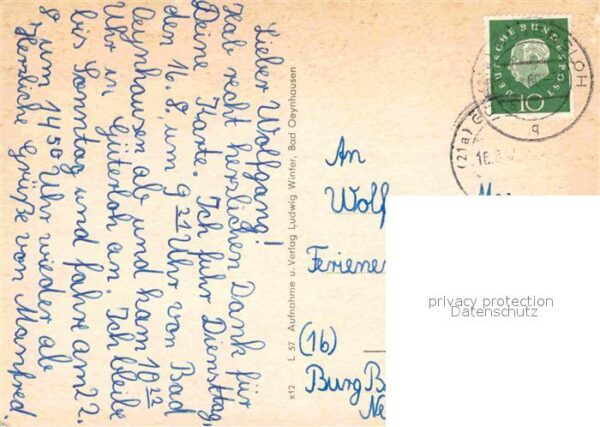 Lieber Wolfgang!
Hab recht herzlichen Dank für
Deine Karte. Ich fuhr Dienstag,
den 16. 8, um 9 21 Uhr von Bad
Oeynhausen ab und kam 10 22
Uhr in Gütersloh an. Ich bleibe
bis Sonntag und fahre am 22.
8 um 14 50 Uhr wieder ab
Herzliche Grüße von Manfred.
x12 L 57 Aufnahme u. Verlag Ludwig Winter, Bad Oeynhausen
DEUTSCHE BUNDESPOST
10
(21a) G
LOH
16.8
q
An
Wolf
Feriene
(16)
Burg B
Ne
privacy protection
Datenschutz